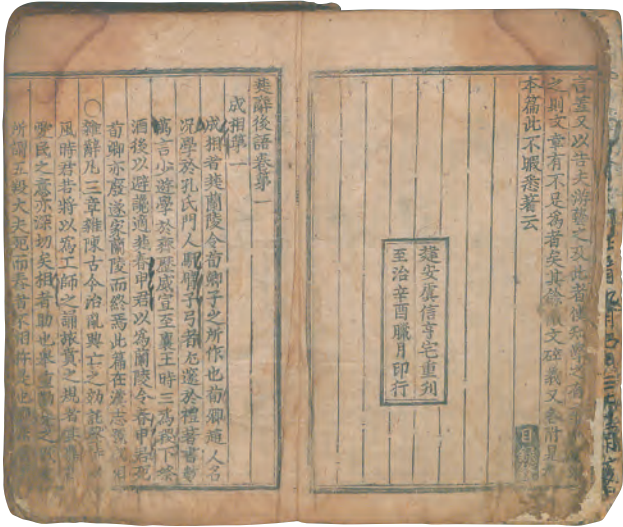 言蓋又以告夫游藝之及此者使知學之有
之則文章有不足為者矣其餘微文碎義又各附見
本篇此不暇悉著云
建安虞信亨宅重刊
至治辛酉臘月印行
目錄
楚辭後語卷第一
成相第一
成相者楚蘭陵令荀卿子之所作也荀卿趙人名
況學於孔氏門人馯臂子弓者尤邃於禮著書數
萬言少遊學於齊歷威宣至襄王時三為稷下祭
酒後以避讒適楚春申君以為蘭陵令春申君死
荀卿亦廢遂家蘭陵而終焉此篇在漢志號成相
○雜辭凡三章雜陳古今治亂興亡之効託聲
風時君若將以為工師之誦旅賁之規者其尊
愛民之意亦深切矣相者助也舉重勸力之歌
所謂五羖大夫死而舂者不相杵是也